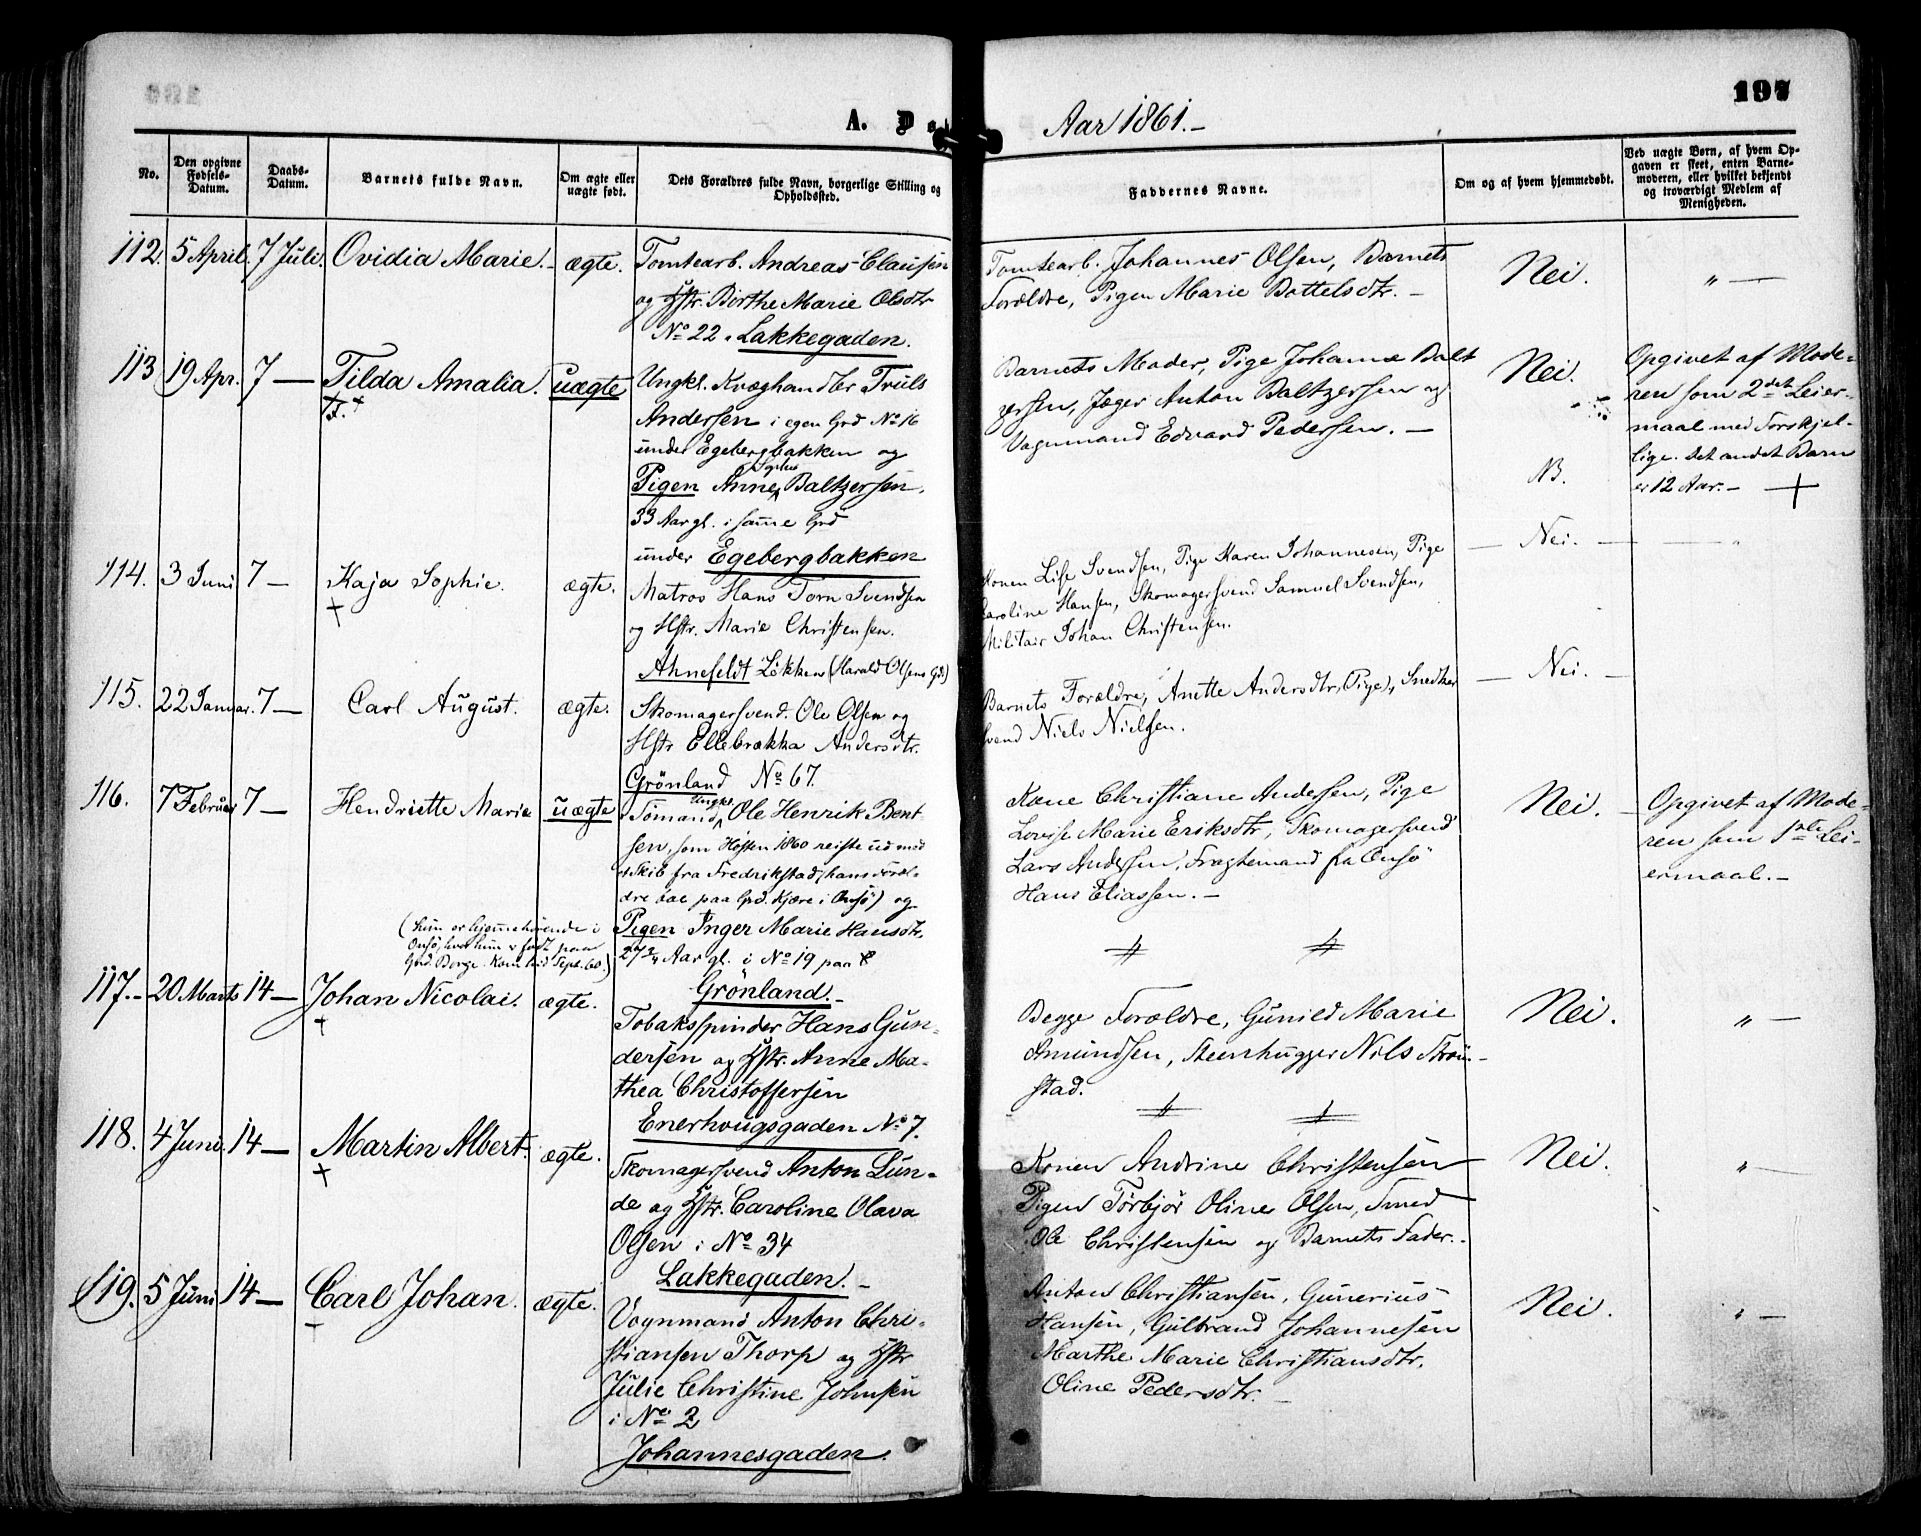 197
A. Dø
Aar 1861.-
No.
Den opgivne
Fødsels-
Datum.
Daabs-
Datum.
Barnets fulde Navn.
Om ægte eller
uægte født.
Dets Forældres fulde Navn, borgerlige Stilling og
Opholdssted.
Faddernes Navne.
Om og af hvem hjemmedøbt.
Ved uægte Børn, af hvem Op-
gaven er skeet, enten Barne-
moderen, eller hvilket bekjendt
og troværdigt Medlem af
Menigheden.
112. 5 April. 7 Juli. Ovidia Marie. - ægte.
Tomtearb. Andreas Clausen
og Hstr. Birthe Marie Olsdtr
No 22. Lakkegaden.
Tomtearb. Johannes Olsen, Barnets
Forældre, Pigen Marie Bottelsdtr. -
Nei. " -
113 19 Apr. 7 - Tilda Amalia. uægte
Ungkl. Kvæghandler Truls
Andersen i egen Grd No 16
under Egebergbakken og
Sophie
Pigen Anne Baltzersen,
33 Aar gl. i samme Grd
under Egebergbakken
Barnets Moder, Pige Johanne Balt
zersen, Jæger Anton Baltzersen og
Vognmand Edvard Pedersen. -
Nei.
N.
Opgivet af Mode-
ren som 2det Leier-
maal med Forskjel-
lige. Det andet Barn
er 12 Aar. - +
114. 3 Juni 7 - Kaja Sophie. ægte.
+
Matros Hans Torn Svendsen
og Hstr. Marie Christensen.
Ahnefeldt Løkken (Harald Olsens Gd.)
Konen Lise Svendsen, Pige Karen Johannesen, Pige
Caroline Hansen, Skomagersvend Samuel Svendsen,
Militair Johan Christensen.
- Nei. - "
115. 22 Januar. 7 - Carl August. ægte.
Skomagersvend. Ole Olsen og
Hstr Ellebrækka Andersdtr.
Grönland No 67.
Barnets Forældre, Anette Andersdtr, (Pige), Snedker
svend Niels Nielsen.
- Nei. -
116. 7 Februar 7 - Hendriette Marie uægte
Ungkl.
Tömand Ole Henrik Bent-
sen, som Høsten 1860 reiste ud med
et Skib fra Fredrikstad, (hans Foræl-
dre boe paa Grd. Kjære i Onsø) og
Pigen Inger Marie Hansdtr,
27 3/4 Aar gl. i No 19 paa
Grönland. -
(hun er hjemmehørende i
Onsø, hvor hun er født paa
Grd. Borge. Kom hid Sept. 60.)
Kone Christiane Andersen, Pige
Lovise Marie Eriksdtr, Skomagersvend
Lars Andersen, Fragtemand fra Onsö
Hans Eliassen. -
Nei. -
Opgivet af Mode-
ren som 1ste Lei-
ermaal. -
117. - 20 Marts 14 - Johan Nicolai. ægte.
+
Tobaksspinder Hans Gun-
dersen og Hstr. Anne Ma-
thea Christoffersen
Enerhougsgaden No 7.
Begge Forældre, Gunild Marie
Amundsen, Steenhugger Nils Strøm-
stad.
Nei. " -
118. 4 Juni 14 - Martin Albert. ægte.
+
Skomagersvend Anton Lun-
de og Hstr. Caroline Olava
Olsen i No 34
Lakkegaden. -
Konen Andrine Christensen
Pigen Torbjør Oline Olsen, Smed
Ole Christensen og Barnets Fader. -
Nei. " -
119. 5 Juni 14 - Carl Johan. ægte.
+
Vognmand Anton Chri-
stiansen Thorp og Hstr
Julie Christine Johnsen
i No 2
Johannesgaden.
Anton Christiansen, Gunerius
Hansen, Gulbrand Johannesen
Marthe Marie Christiansdtr,
Oline Pedersdtr.
Nei. " -